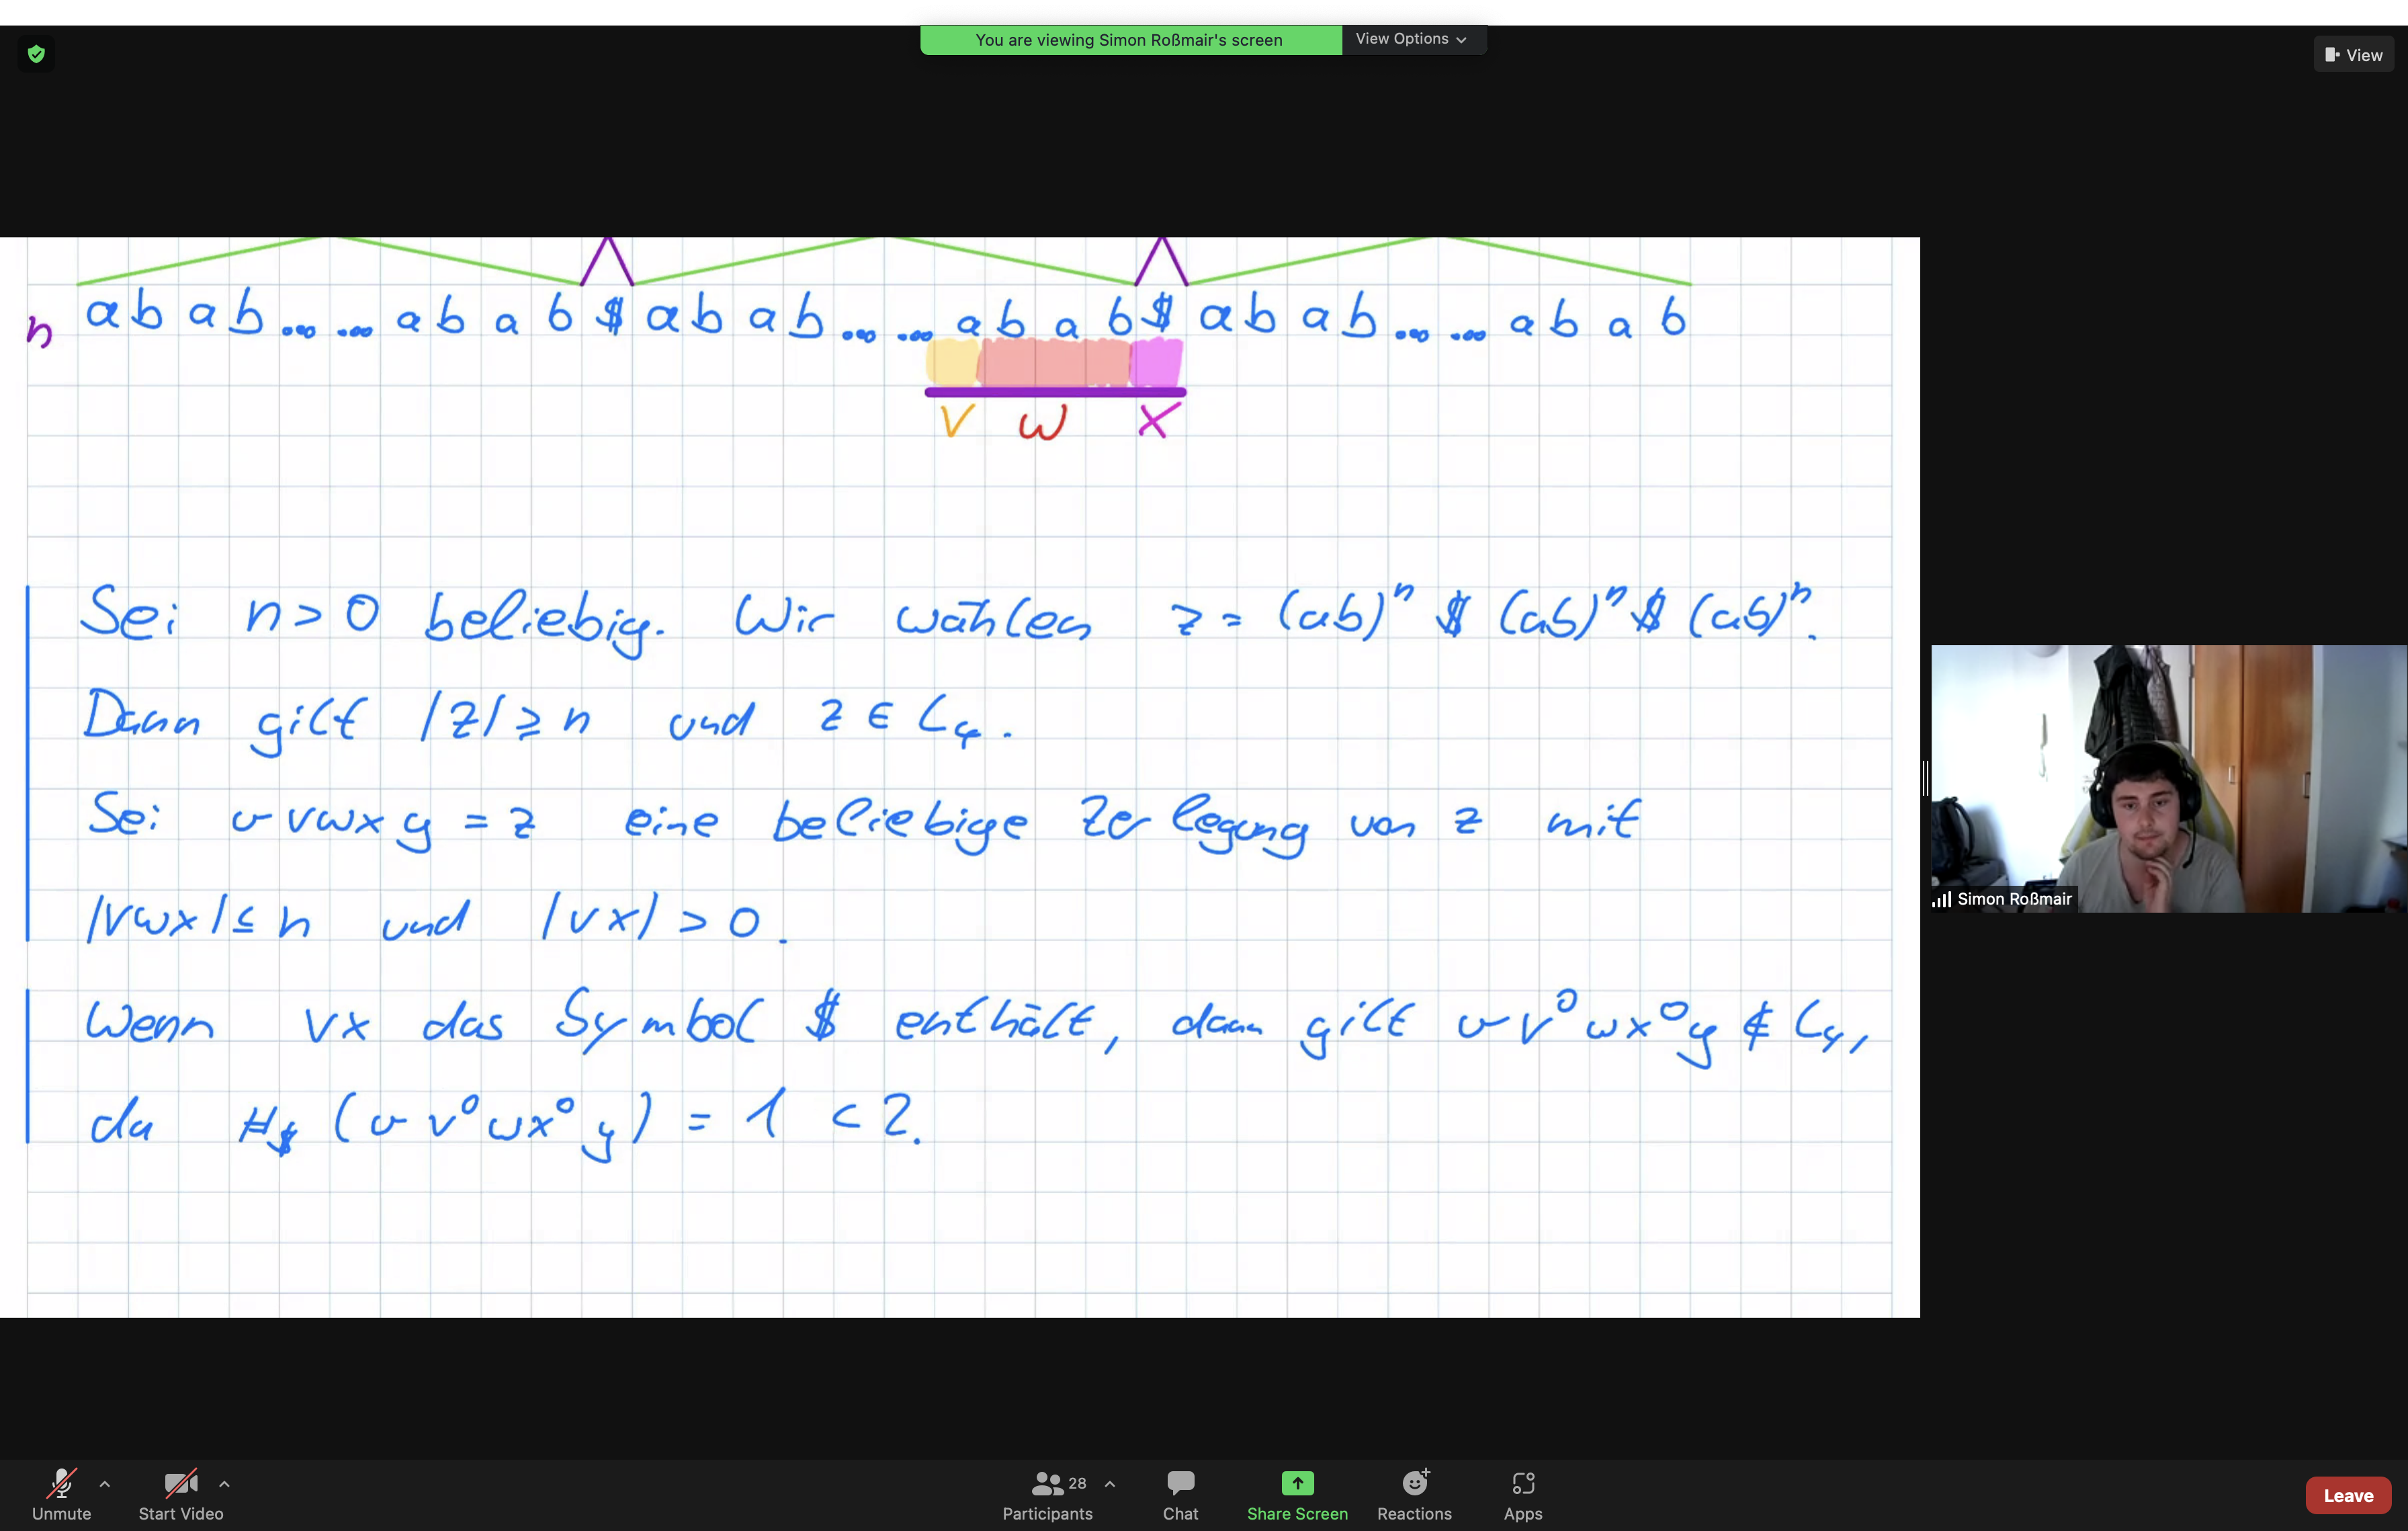 You are viewing Simon Roßmair's screen View Options
View
n a b a b ... ... a b a b $ a b a b ... ... a b a b $ a b a b ... ... a b a b
v w x
Sei n > 0 beliebig. Wir wählen z = (ab)ⁿ $ (ab)ⁿ $ (ab)ⁿ.
Dann gilt |z| ≥ n und z ∈ L₄.
Sei uvwxy = z eine beliebige Zerlegung von z mit
|vwx| ≤ n und |vx| > 0.
Wenn vx das Symbol $ enthält, dann gilt uv⁰wx⁰y ∉ L₄,
da #$ (uv⁰wx⁰y) = 1 < 2.
Simon Roßmair
Unmute Start Video 28 Participants Chat Share Screen Reactions Apps Leave